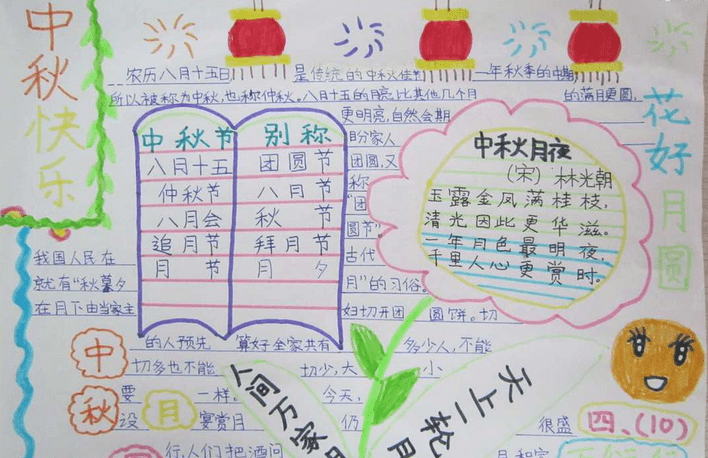 中秋快乐
农历八月十五日 是传统的中秋佳节 一年秋季的中期
所以被称为中秋,也称仲秋。八月十五的月亮比其他几个月 的满月更圆,
更明亮,自然会期
盼家人
团圆,又
称
"团
圆节"
古代
月"的习俗。
中秋节 别称
八月十五 团圆节
仲秋节 八月节
八月会 秋节
追月节 拜月节
月节 月夕
中秋月夜
(宋) 林光朝
玉露金凤满桂枝,
清光因此更华滋。
一年月色最明夜,
千里人心更赏时。
花好月圆
我国人民在
就有"秋暮夕
在月下由当家主 妇切开团 圆饼。切
的人预先 算好全家共有 多少人,不能
切多也不能 切少,大 小
要 一样。 今天,
设 宴赏月 仍 很盛
行,人们把酒问
中
秋
月
人间万家
天上一轮月
四、(10)